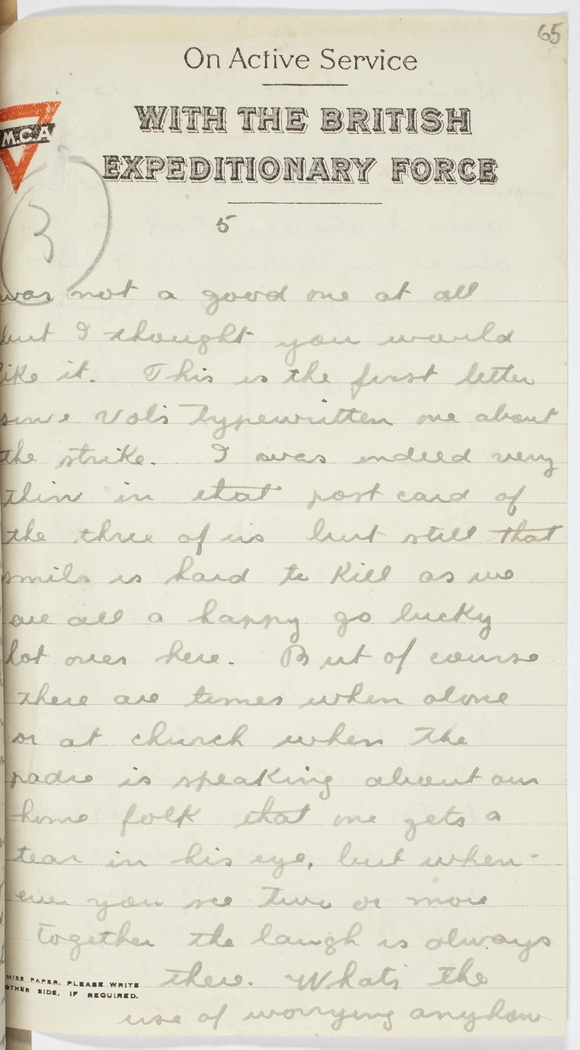 65
On Active Service
WITH THE BRITISH
EXPEDITIONARY FORCE
M.C.A
3
5
was not a good one at all
but I thought you would
like it. This is the first letter
since Vol's typewritten one about
the strike. I was indeed very
thin in that post card of
the three of us but still that
smile is hard to kill as we
are all a happy go lucky
lot ones here. But of course
there are times when alone
or at church when the
padre is speaking about our
home folk that one gets a
tear in his eye, but when-
ever you see two or more
together the laugh is always
there. Whats the
use of worrying anyhow
MISE PAPER. PLEASE WRITE
OTHER SIDE, IF REQUIRED.